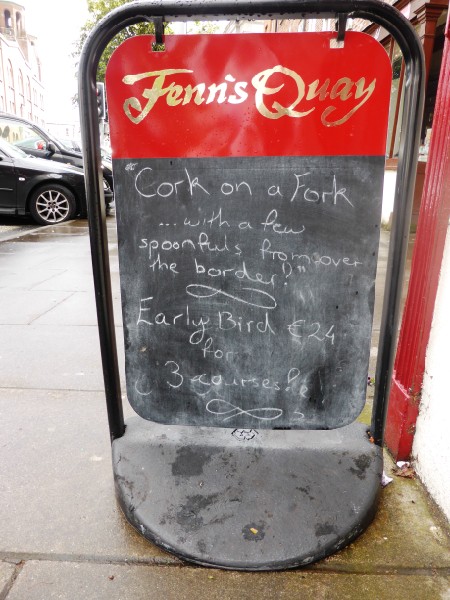 Fenn's Quay
"Cork on a Fork
... with a few
spoonfuls from over
the border!"
Early Bird €24
for
3 courses!